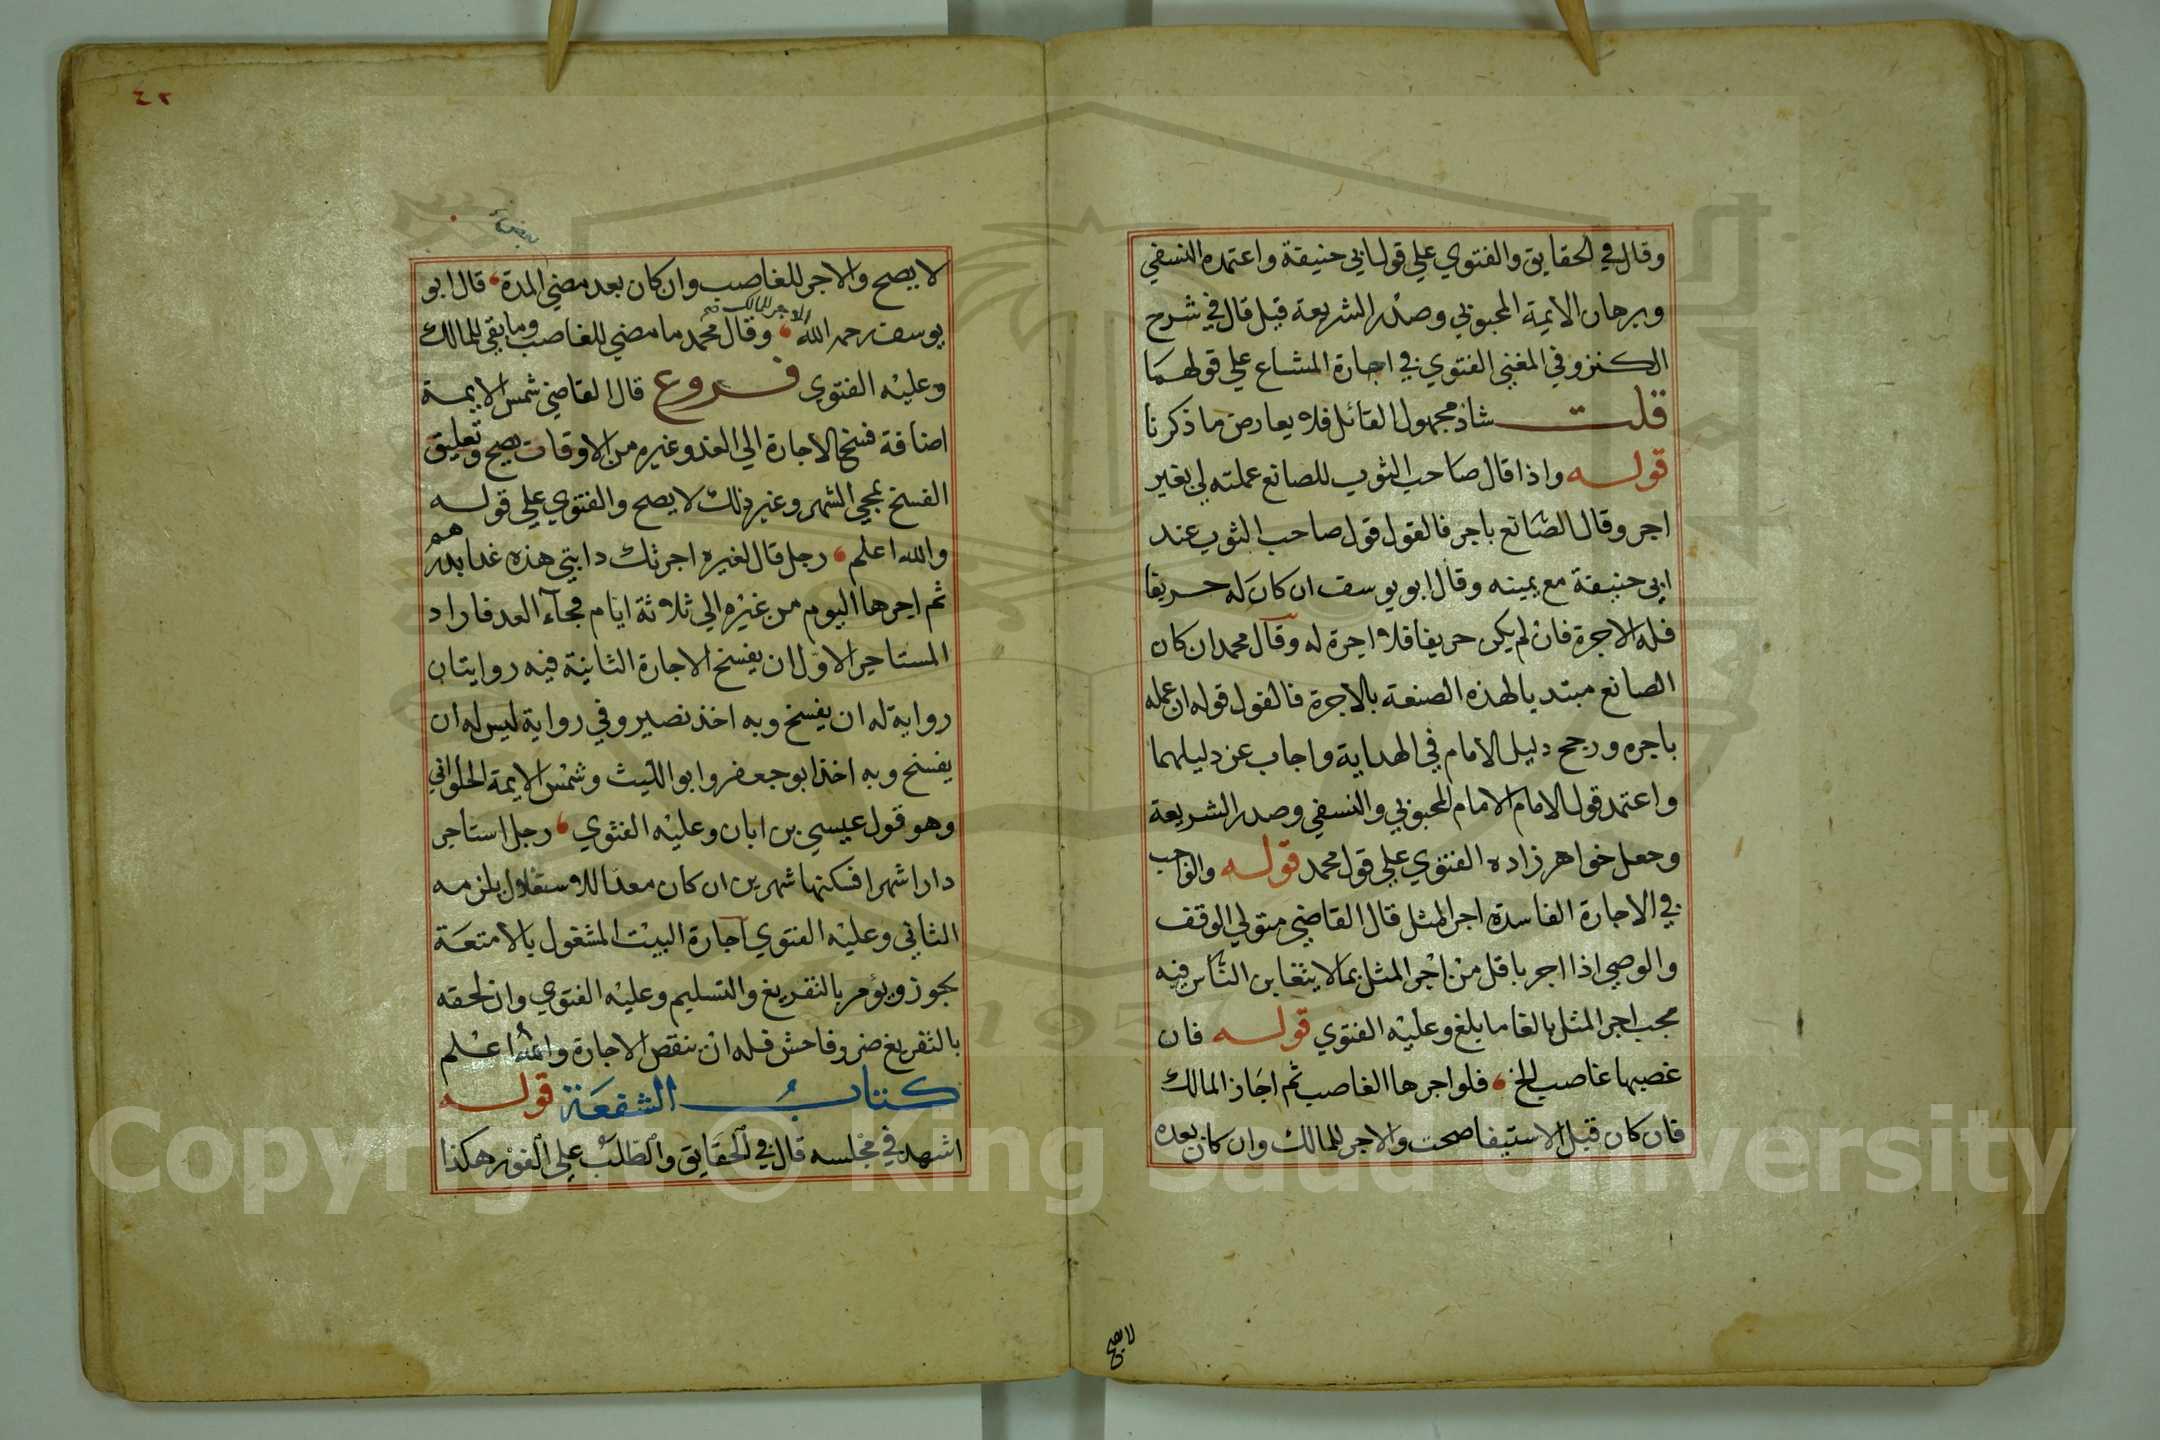 وقال في الحقايق والفتوي علي قول ابي حنيفة واعتمده النسفي
وبرهان الايمة المحبوبي وصدر الشريعة قبل قال في شرح
الكنز وفي المغني الفتوي في اجارة المشاع علي قولهما
قلت شاذ مجهول القائل فلا يعارض ما ذكرنا
قوله واذا قال صاحب الثوب للصانع عملته لي بغير
اجر وقال الصانع باجر فالقول قول صاحب الثوب عند
ابي حنيفة مع يمينه وقال ابو يوسف ان كان له حريفا
فله الاجرة فان لم يكن حريفا فلا اجرة له وقال محمد ان كان
الصانع مبتديا لهذه الصنعة بالاجرة فالقول قوله ان عمله
باجره ورجح دليل الامام في الهداية واجاب عن دليلهما
واعتمد قول الامام الامام المحبوبي والنسفي وصدر الشريعة
وجعل خواهر زاده الفتوي علي قول محمد قوله والواجب
في الاجارة الفاسدة اجر المثل قال القاضي متولي الوقف
والوصي اذا اجر باقل من اجر المثل بما لا يتغابن الناس فيه
يجب اجر المثل بالغا ما بلغ وعليه الفتوي قوله فان
غصبها غاصب الخ فلو اجرها الغاصب ثم اجاز المالك
فان كان قبل الاستيفا صحت والاجر للمالك وان كان بعده
لا يصح
٤٢
لا يصح والاجر للغاصب وان كان بعد مضي المدة قال ابو
الاجر للمالك
يوسف رحمه الله وقال محمد ما مضي للغاصب وما بقي للمالك
وعليه الفتوي فروع قال القاضي شمس الايمة
اضافة فسخ الاجارة الي الغد وغيره من الاوقات يصح وتعليق
الفسخ بمجي الشهر وغير ذلك لا يصح والفتوي علي قوله
والله اعلم رجل قال لغيره اجرتك دابتي هذه غدا بدرهم
ثم اجرها اليوم من غيره الي ثلاثة ايام فجآء الغد فاراد
المستاجر الاول ان يفسخ الاجارة الثانية فيه روايتان
رواية له ان يفسخ وبه اخذ نصير وفي رواية ليس له ان
يفسخ وبه اخذ ابو جعفر وابو الليث وشمس الايمة الحلواني
وهو قول عيسي بن ابان وعليه الفتوي رجل استاجر
دارا شهرا فسكنها شهرين ان كان معدا للاستغلال يلزمه
الثاني وعليه الفتوي اجارة البيت المشغول بالامتعة
يجوز ويؤمر بالتفريغ والتسليم وعليه الفتوي وان لحقه
بالتفريغ ضرر فاحش فله ان ينقض الاجارة والله اعلم
كتاب الشفعة قوله
اشهد في مجلسه قال في الحقايق والطلب علي الفور هكذا
Copyright © King Saud University
1957